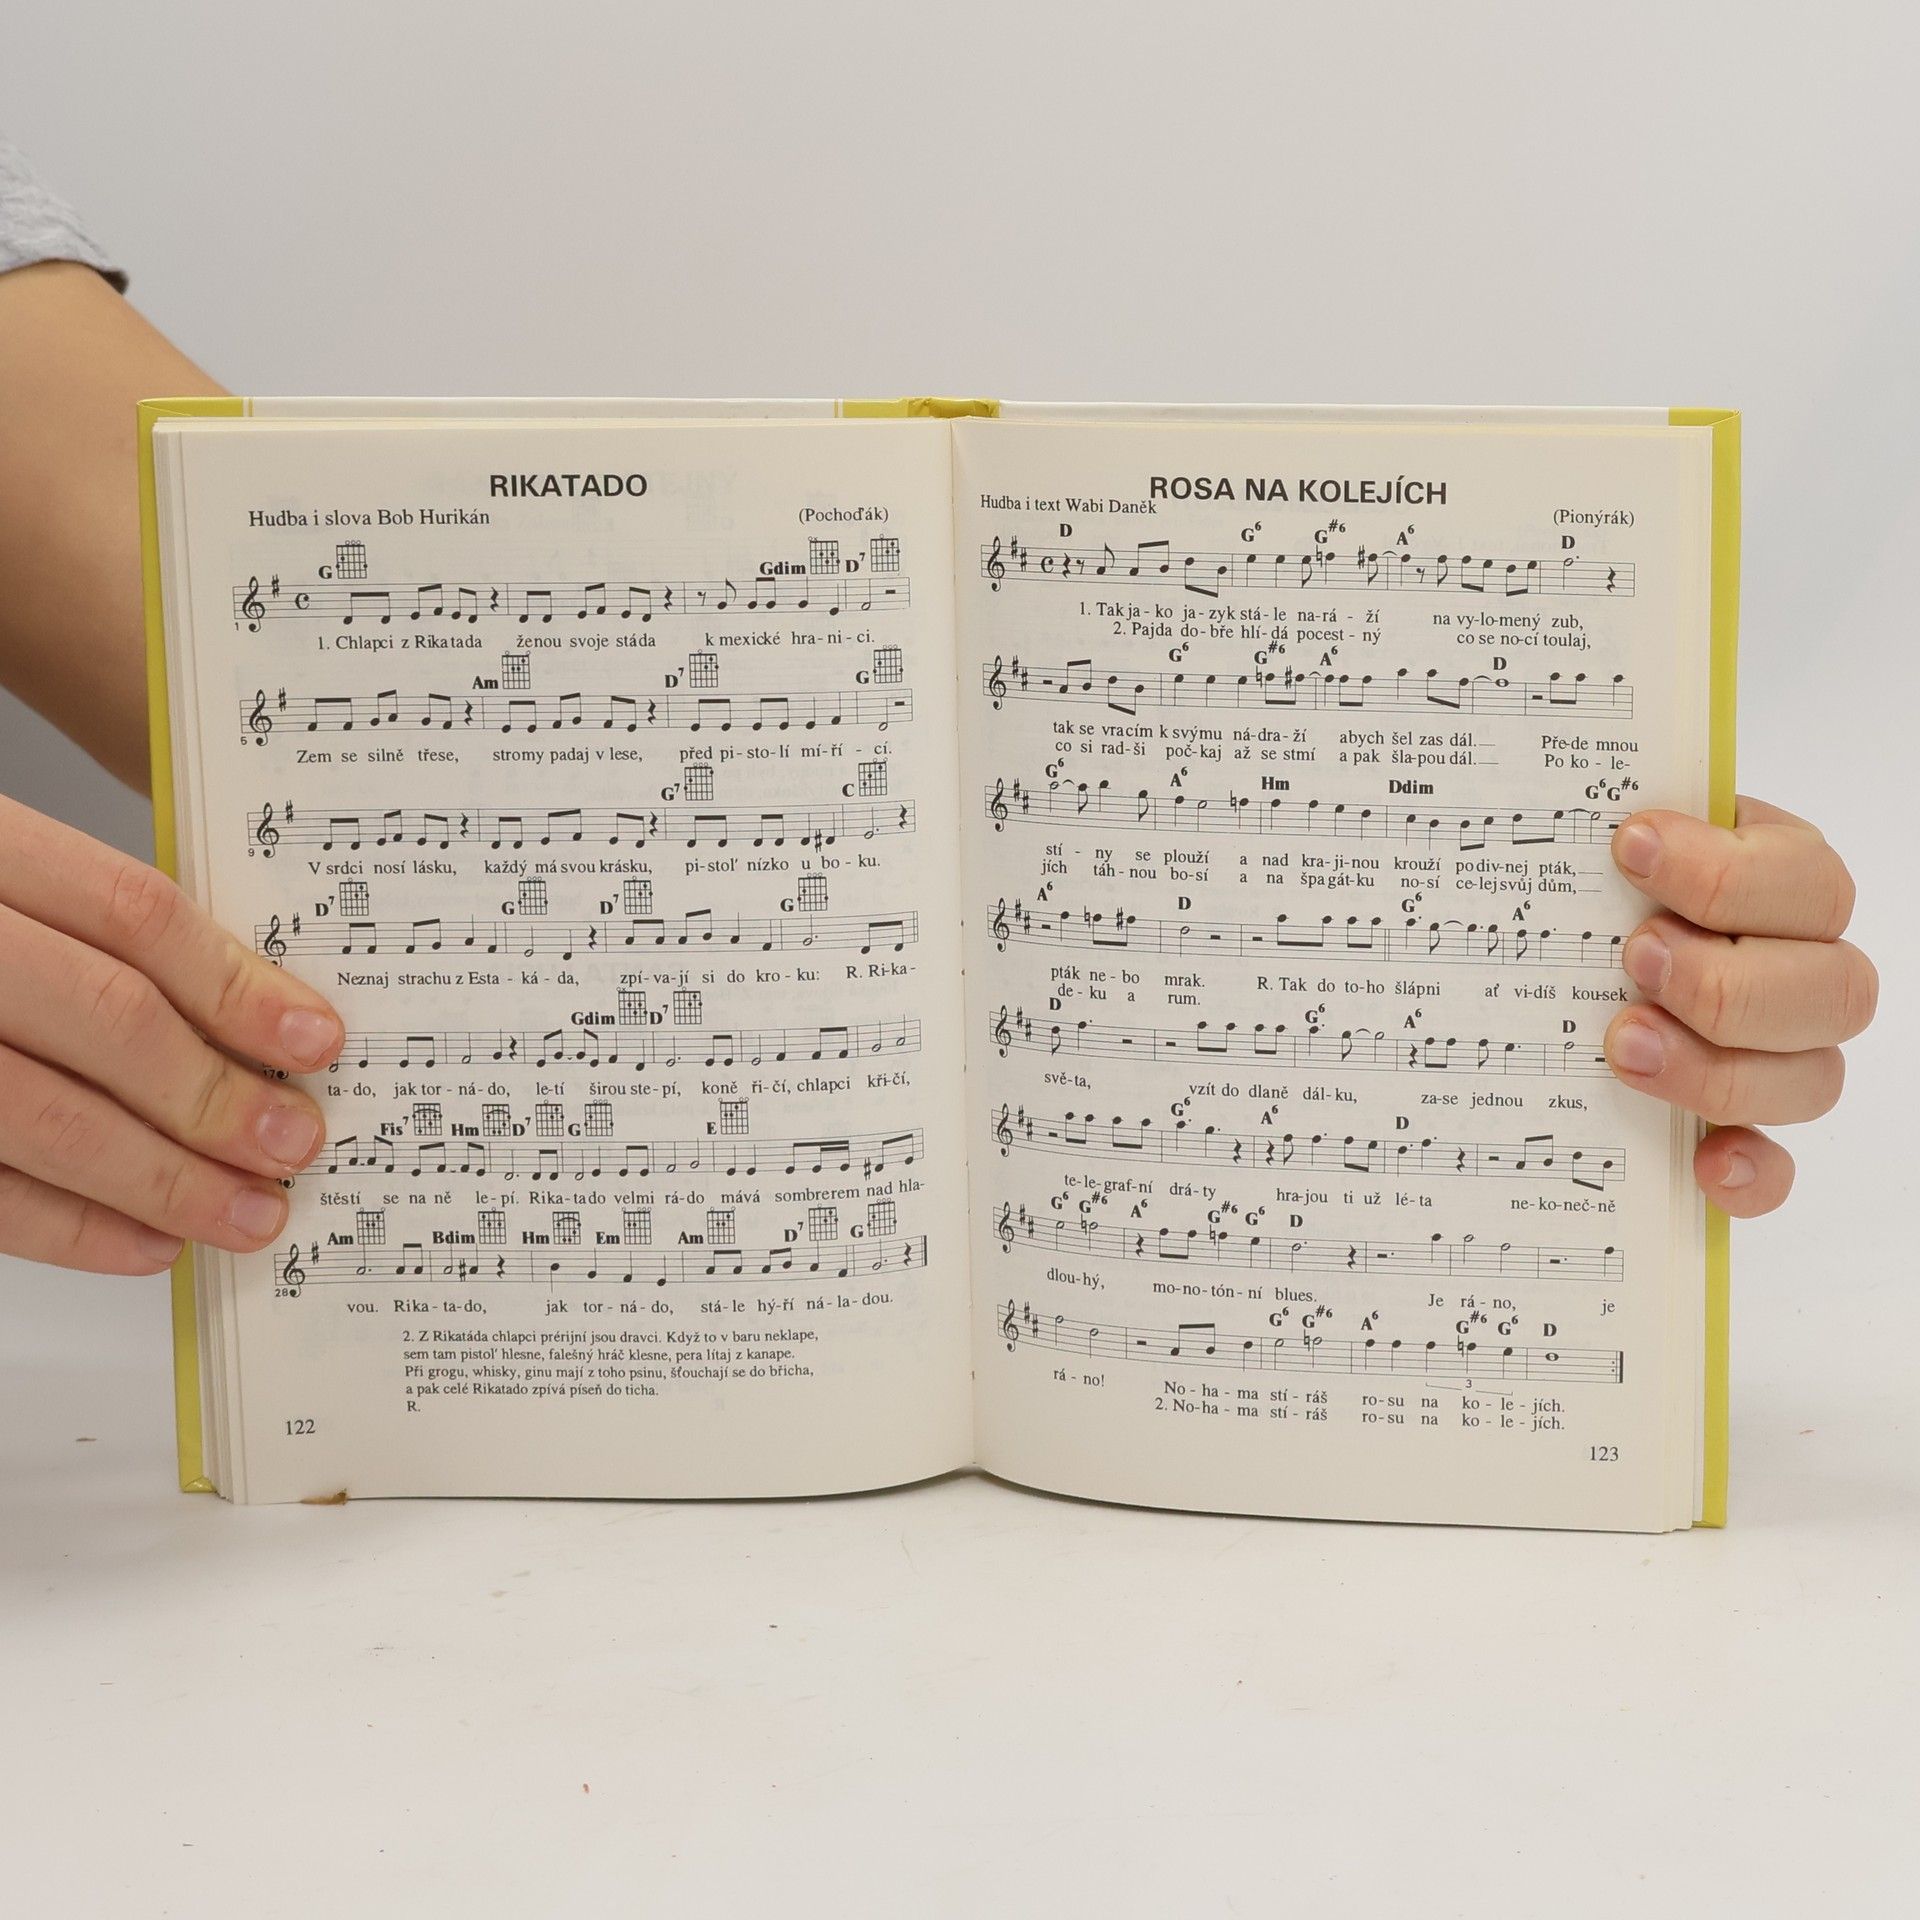 RIKATADO
Hudba i slova Bob Hurikán (Pochoďák)
G Gdim D7
1
1. Chlapci z Rikatada ženou svoje stáda k mexické hra-ni-ci.
Am D7 G
5
Zem se silně třese, stromy padaj v lese, před pi-sto-lí mí-ří - cí.
G7 C
9
V srdci nosí lásku, každý má svou krásku, pi-stoľ nízko u bo-ku.
D7 G D7 G
Neznaj strachu z Esta - ká - da, zpí-va-jí si do kro-ku: R. Ri-ka-
Gdim D7
17
ta-do, jak tor - ná-do, le-tí širou ste-pí, koně ři-čí, chlapci kři-čí,
Fis7 Hm D7 G E
štěstí se na ně le-pí. Rika-tado velmi rá-do mává sombrerem nad hla-
Am Bdim Hm Em Am D7 G
28
vou. Rika-ta-do, jak tor-ná-do, stá-le hý-ří ná-la-dou.
2. Z Rikatáda chlapci prérijní jsou dravci. Když to v baru neklape,
sem tam pistoľ hlesne, falešný hráč klesne, pera lítaj z kanape.
Při grogu, whisky, ginu mají z toho psinu, šťouchají se do břicha,
a pak celé Rikatado zpívá píseň do ticha.
R.
122
ROSA NA KOLEJÍCH
Hudba i text Wabi Daněk (Pionýrák)
D G6 G#6 A6 D
1. Tak ja-ko ja-zyk stá-le na-rá - ží na vy-lo-mený zub,
2. Pajda do-bře hlí-dá pocest-ný co se no-cí toulaj,
G6 G#6 A6 D
tak se vracím k svýmu ná-dra-ží abych šel zas dál. Pře-de mnou
co si rad-ši poč-kaj až se stmí a pak šla-pou dál. Po ko - le-
G6 A6 Hm Ddim G6 G#6
stí - ny se plouží a nad kra-ji-nou krouží podiv-nej pták,
jích táh-nou bo-sí a na špagát-ku no-sí ce-lej svůj dům,
A6 D G6 A6
pták ne-bo mrak. R. Tak do to-ho šlápni ať vi-díš kousek
de-ku a rum.
D G6 A6 D
svě-ta, vzít do dlaně dál-ku, za-se jednou zkus,
G6 A6 D
te-le-graf-ní drá-ty hra-jou ti už lé-ta ne-ko-neč-ně
G6 G#6 A6 G#6 G6 D
dlou-hý, mo-no-tón-ní blues. Je rá-no, je
G6 G#6 A6 G#6 G6 D
3
rá - no! No-ha-ma stí-ráš ro-su na ko-le-jích.
2. No-ha-ma stí-ráš ro-su na ko-le-jích.
123